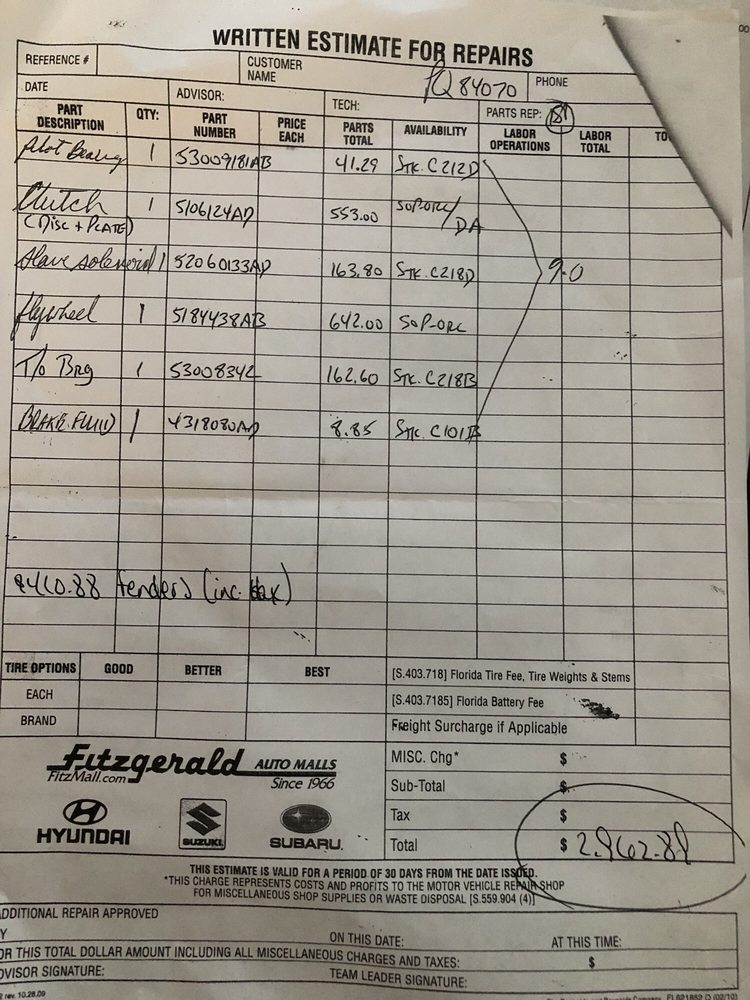 WRITTEN ESTIMATE FOR REPAIRS
REFERENCE #
CUSTOMER NAME
84070
PHONE
DATE
ADVISOR:
TECH:
PARTS REP:
PART DESCRIPTION QTY: PART NUMBER PRICE EACH PARTS TOTAL AVAILABILITY LABOR OPERATIONS LABOR TOTAL
Pilot Bearing 1 53009181AB 41.29 STK. C212D
Clutch 1 5106124AD 553.00 SOP-ORL/
(Disc + PLATE) DA
Slave solenoid 1 52060133AD 163.80 STK. C218D 9.0
flywheel 1 5184438AB 642.00 SOP-ORL
T/o Brg 1 53008342 162.60 STK. C218B
BRAKE FLUID 1 4318080AD 8.85 STK. C101B
fenders (inc. tax)
TIRE OPTIONS GOOD BETTER BEST
EACH
BRAND
[S.403.718] Florida Tire Fee, Tire Weights & Stems
[S.403.7185] Florida Battery Fee
Freight Surcharge if Applicable
MISC. Chg* $
Sub-Total $
Tax $
Total $ 2,962.89
Fitzgerald AUTO MALLS
FitzMall.com Since 1966
HYUNDAI SUZUKI SUBARU.
THIS ESTIMATE IS VALID FOR A PERIOD OF 30 DAYS FROM THE DATE ISSUED.
*THIS CHARGE REPRESENTS COSTS AND PROFITS TO THE MOTOR VEHICLE REPAIR SHOP
FOR MISCELLANEOUS SHOP SUPPLIES OR WASTE DISPOSAL [S.559.904 (4)]
ADDITIONAL REPAIR APPROVED
ON THIS DATE: AT THIS TIME:
OR THIS TOTAL DOLLAR AMOUNT INCLUDING ALL MISCELLANEOUS CHARGES AND TAXES: $
DVISOR SIGNATURE: TEAM LEADER SIGNATURE:
rev. 10.28.09